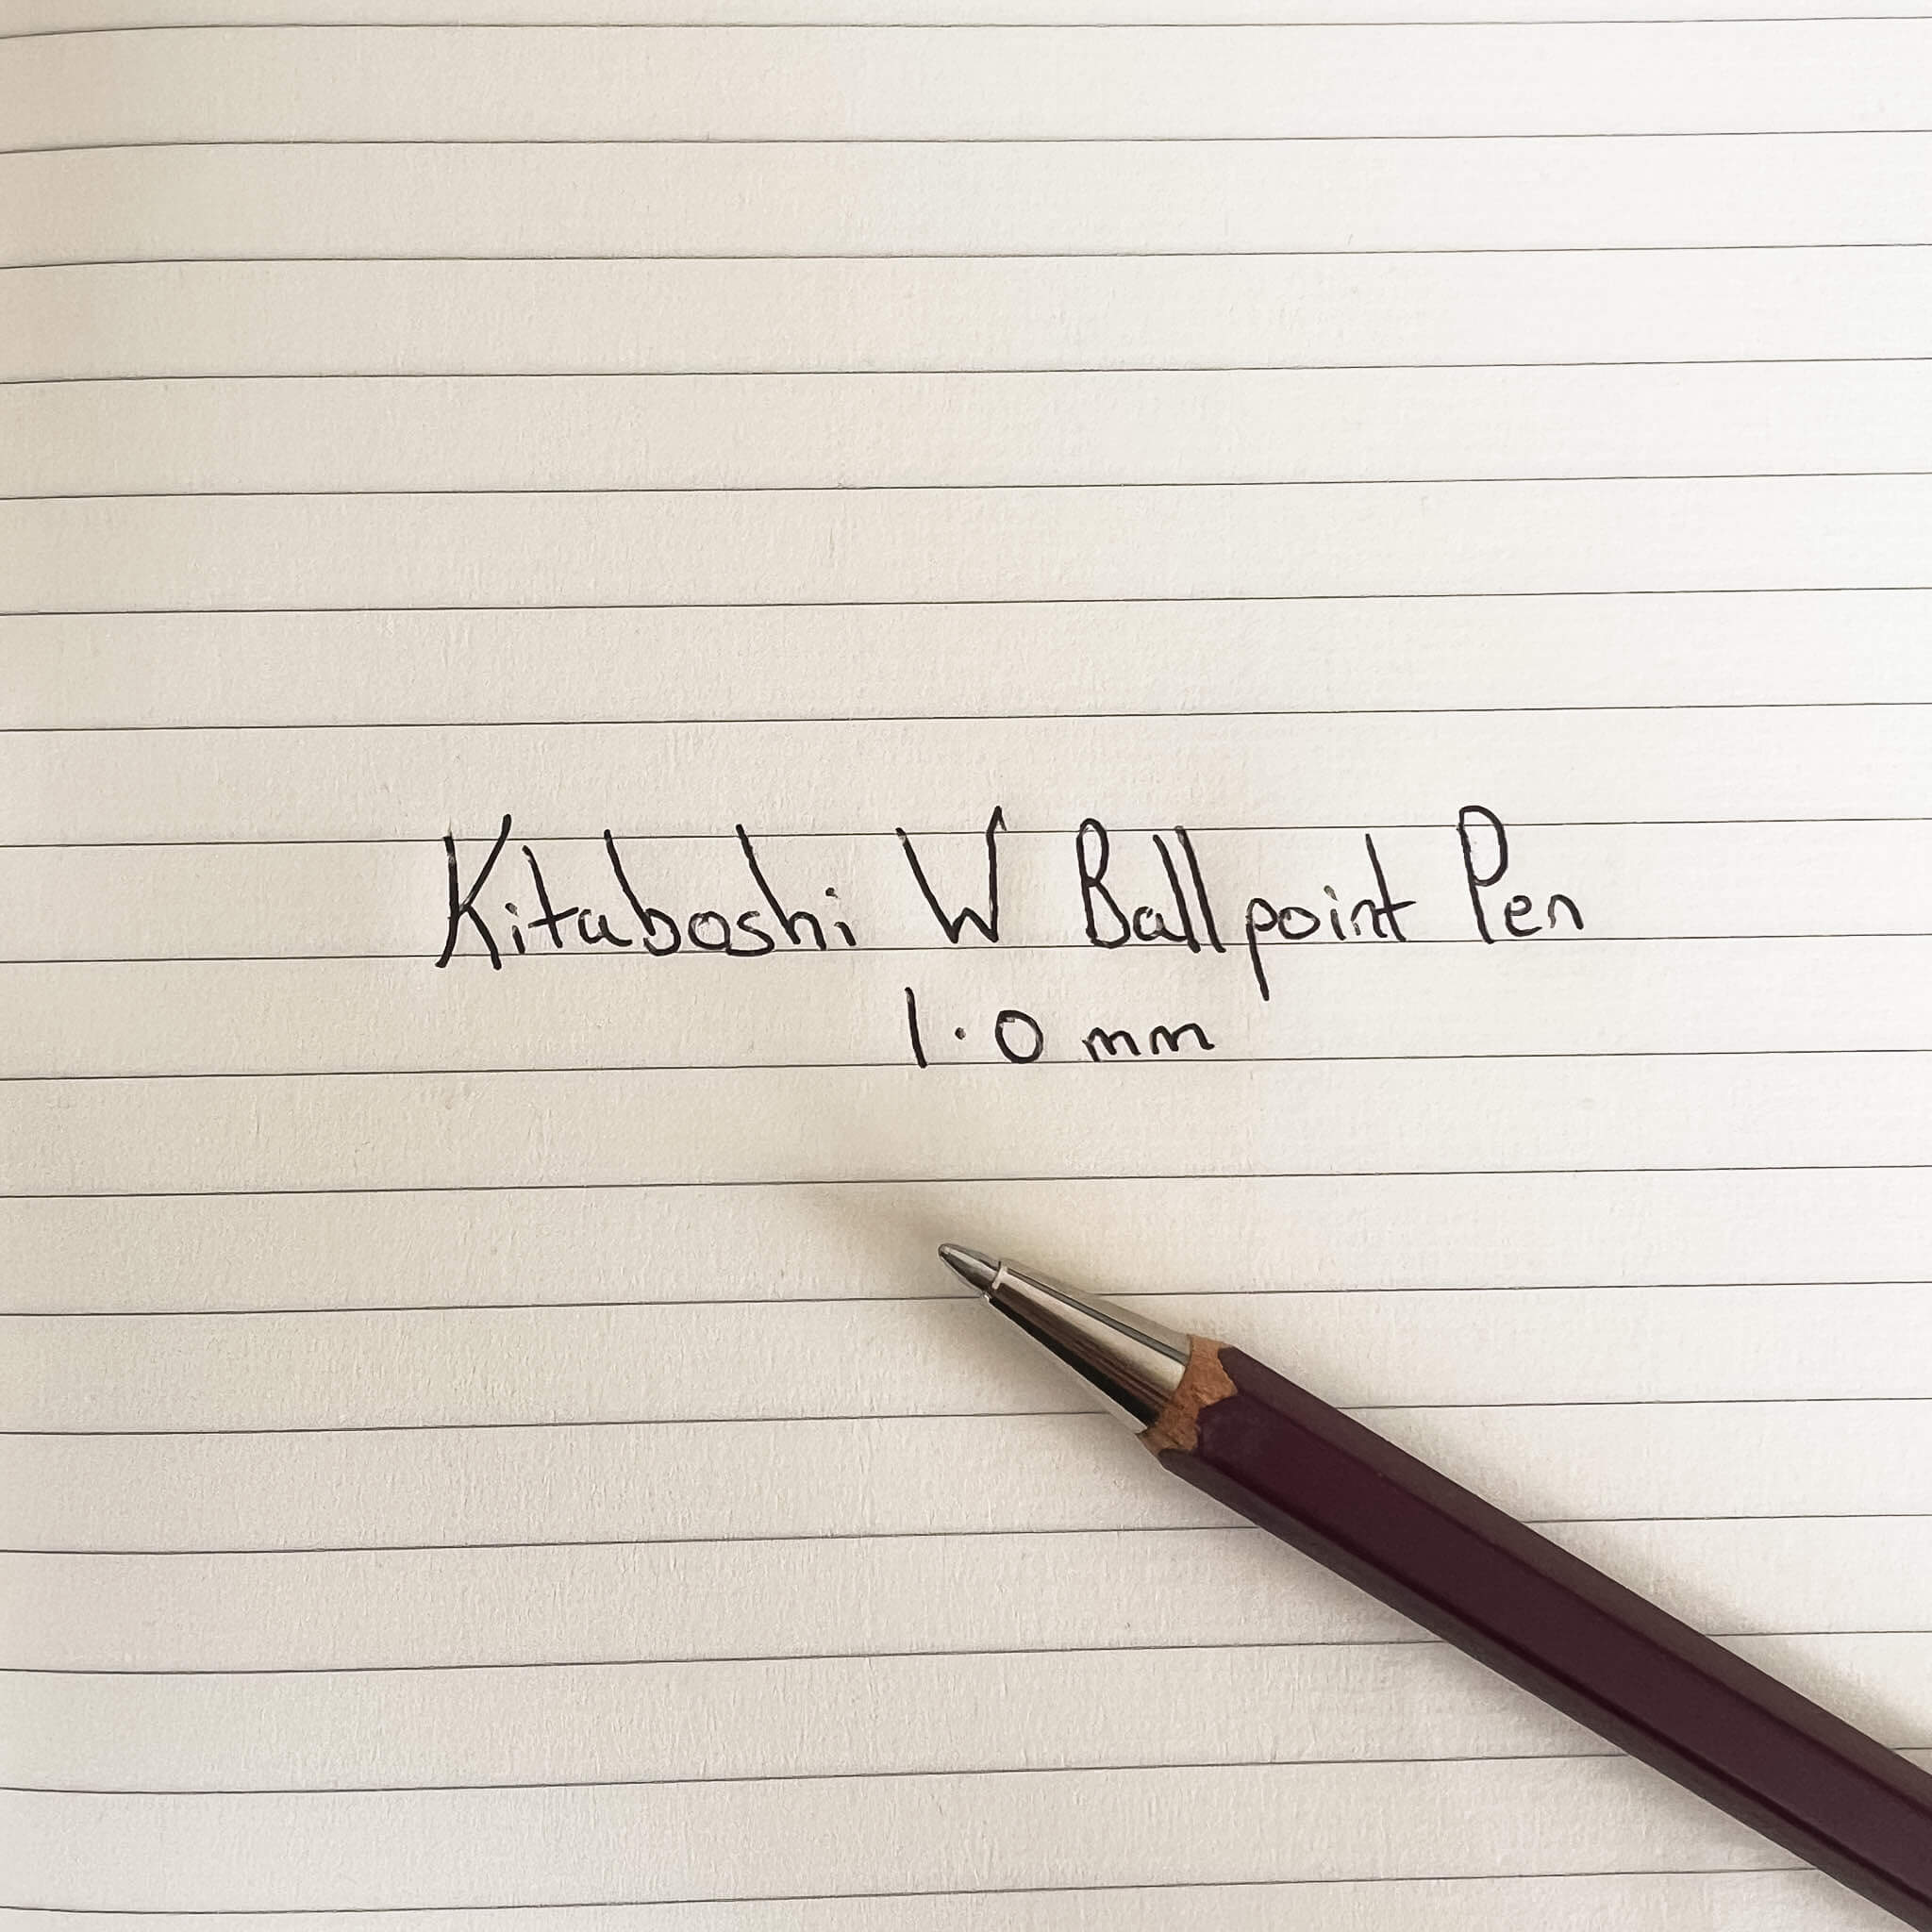 Kitaboshi W Ballpoint Pen
1.0 mm